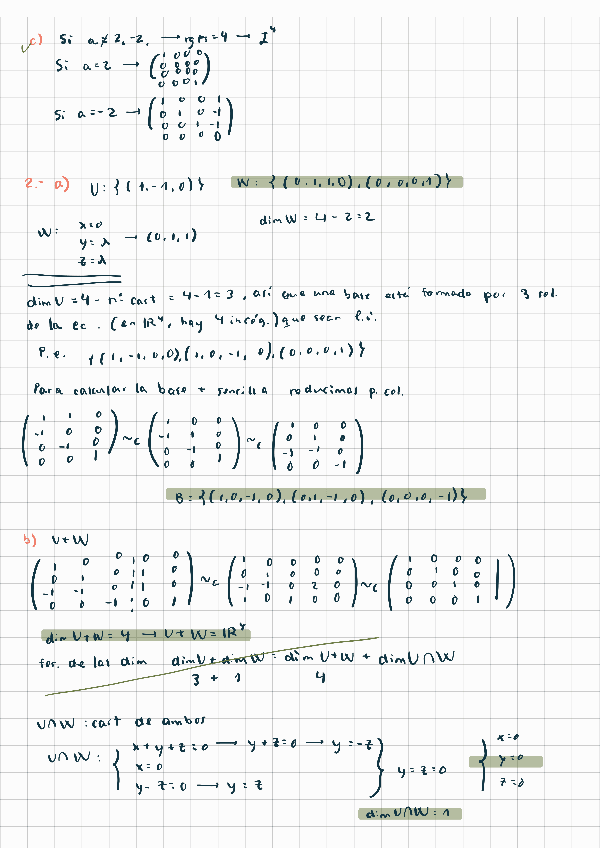 c) Si a ≠ 2, -2, → rg M = 4 → I⁴
Si a = 2 → ( 1 0 0 0
0 0 0 0
0 0 0 0
0 0 0 1 )
Si a = -2 → ( 1 0 0 1
0 1 0 -1
0 0 1 -1
0 0 0 0 )
2.- a) U: {(1, -1, 0)} W: {(0, 1, 1, 0), (0, 0, 0, 1)}
W: x = 0
y = λ → (0, 1, 1)
z = λ
dim W = 4 - 2 = 2
dim U = 4 - nº cart = 4 - 1 = 3, así que una base está formado por 3 sol.
de la ec. (en IR⁴, hay 4 incóg.) que sean l.i.
P.e. {(1, -1, 0, 0), (1, 0, -1, 0), (0, 0, 0, 1)}
Para calcular la base + sencilla reducimos p. col.
( 1 1 0 ) ~c ( 1 0 0 ) ~c ( 1 0 0 )
( -1 0 0 ) ( -1 1 0 ) ( 0 1 0 )
( 0 -1 0 ) ( 0 -1 0 ) ( -1 -1 0 )
( 0 0 1 ) ( 0 0 1 ) ( 0 0 -1 )
B = {(1, 0, -1, 0), (0, 1, -1, 0), (0, 0, 0, -1)}
b) U + W
( 1 0 0 0 0 ) ~c ( 1 0 0 0 0 ) ~c ( 1 0 0 0 )
( 0 1 0 1 0 ) ( 0 1 0 0 0 ) ( 0 1 0 0 )
( -1 -1 0 1 0 ) ( -1 -1 0 2 0 ) ( 0 0 1 0 )
( 0 0 -1 0 1 ) ( 0 0 1 0 0 ) ( 0 0 0 1 )
dim U + W = 4 → U + W = IR⁴
for. de las dim dim U + dim W = dim U + W + dim U ∩ W
3 + 1 4
U ∩ W : cart de ambos
U ∩ W : { x + y + z = 0 → y + z = 0 → y = -z
x = 0
y - z = 0 → y = z
} y = z = 0 { x = 0
y = 0
z = 0
dim U ∩ W : 1